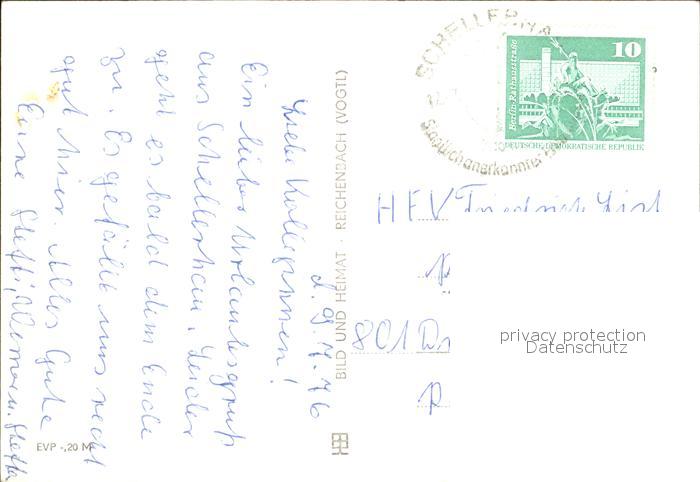 d. 9.7.76
Liebe Kolleginnen!
Ein lieber Urlaubsgruß
aus Schellerhau. Leider
geht es bald dem Ende
zu. Es gefällt uns recht
gut hier. Alles Gute
Eure Steffi,
EVP -,20 M
BILD UND HEIMAT · REICHENBACH (VOGTL)
SCHELLERHA
Staatlich anerkannter
10
Berlin-Rathausstraße
DEUTSCHE DEMOKRATISCHE REPUBLIK
HFV Friedrich List
801 Dr
privacy protection
Datenschutz